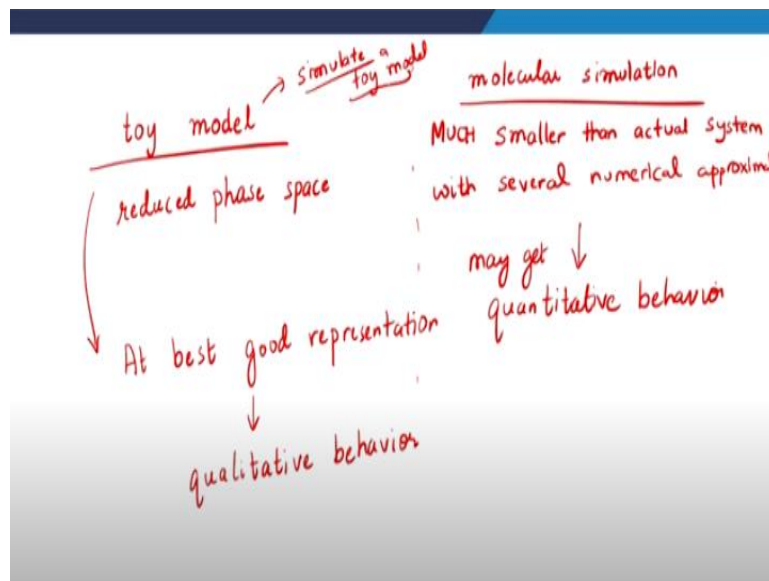 toy model
simulate a
toy model
reduced phase space
At best good representation
qualitative behavior
molecular simulation
MUCH smaller than actual system
with several numerical approxim
may get
quantitative behavior